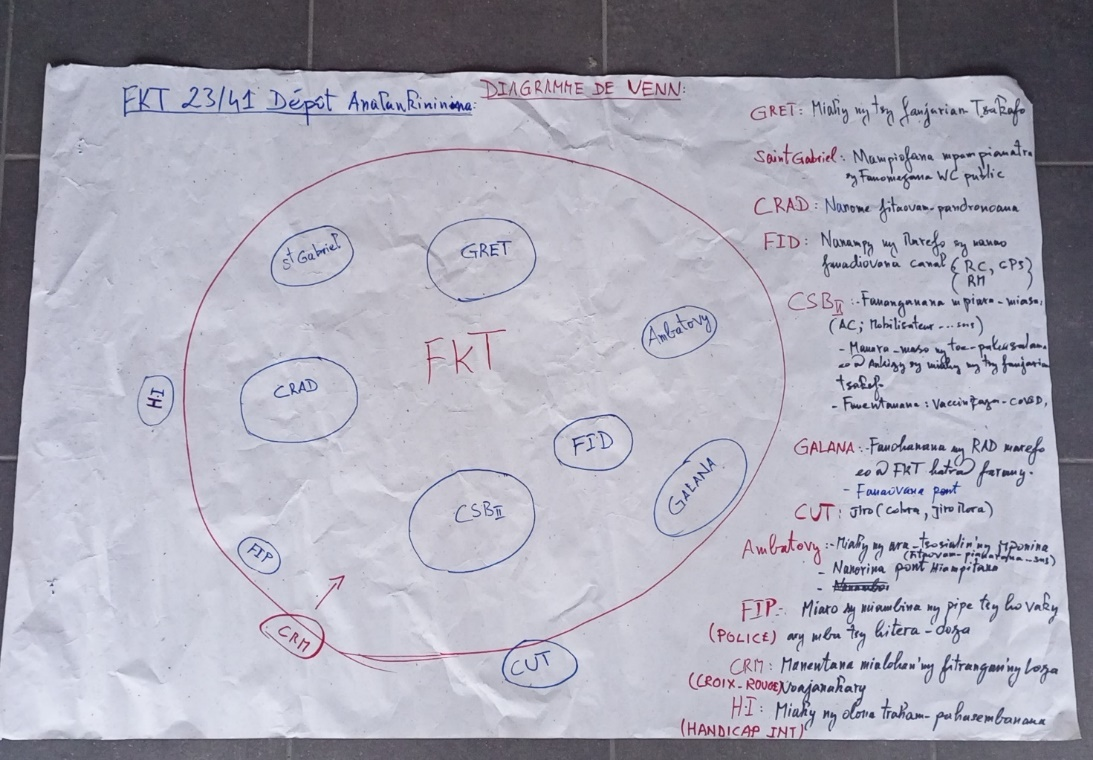 FKT 23/41 Dépôt Anatankininina:
DIAGRAMME DE VENN:
St Gabriel
GRET
Ambatovy
FKT
H-I
CRAD
FID
GALANA
CSBII
FIP
CRM
CUT
GRET: Miahy ny tsy fanjarian Tsakafo
Saint Gabriel: Mampiofana mpampianatra
sy Fanomezana WC public
CRAD: Nanome fitaovam-pandroncana
FID: Nanampy ny marefo sy nanao
fanadiovana canal { RC, GPS }
( RM )
CSBII: - Fananganana mpiara-miasa,
(AC; Mobilisateur ... sns)
- Manara-maso ny
eo @ Ankizy sy miahy ny tsy fanjarian
tsakafo
- Fanentanana: Vaccin COVID,
GALANA: - Fanohanana ny RAD marefo
eo @ FKT hatr@ farany.
- Fanaovana pont
CUT: Jiro (Cobra, Jiro Mora)
Ambatovy: - Miahy ny ara-tsosialin'ny Mponina
(Fitaovam-pianarana-sns)
- Nanorina pont Hiampitana
FIP: Miaro sy miambina ny pipe tsy ho vaky
(POLICE) ary mba tsy hitera-doza
CRM: Manentana mialohan'ny fitrangan'ny loza
(CROIX-ROUGE) Voajanahary
H-I: Miahy ny olona traikam-pahasembanana
(HANDICAP INT)